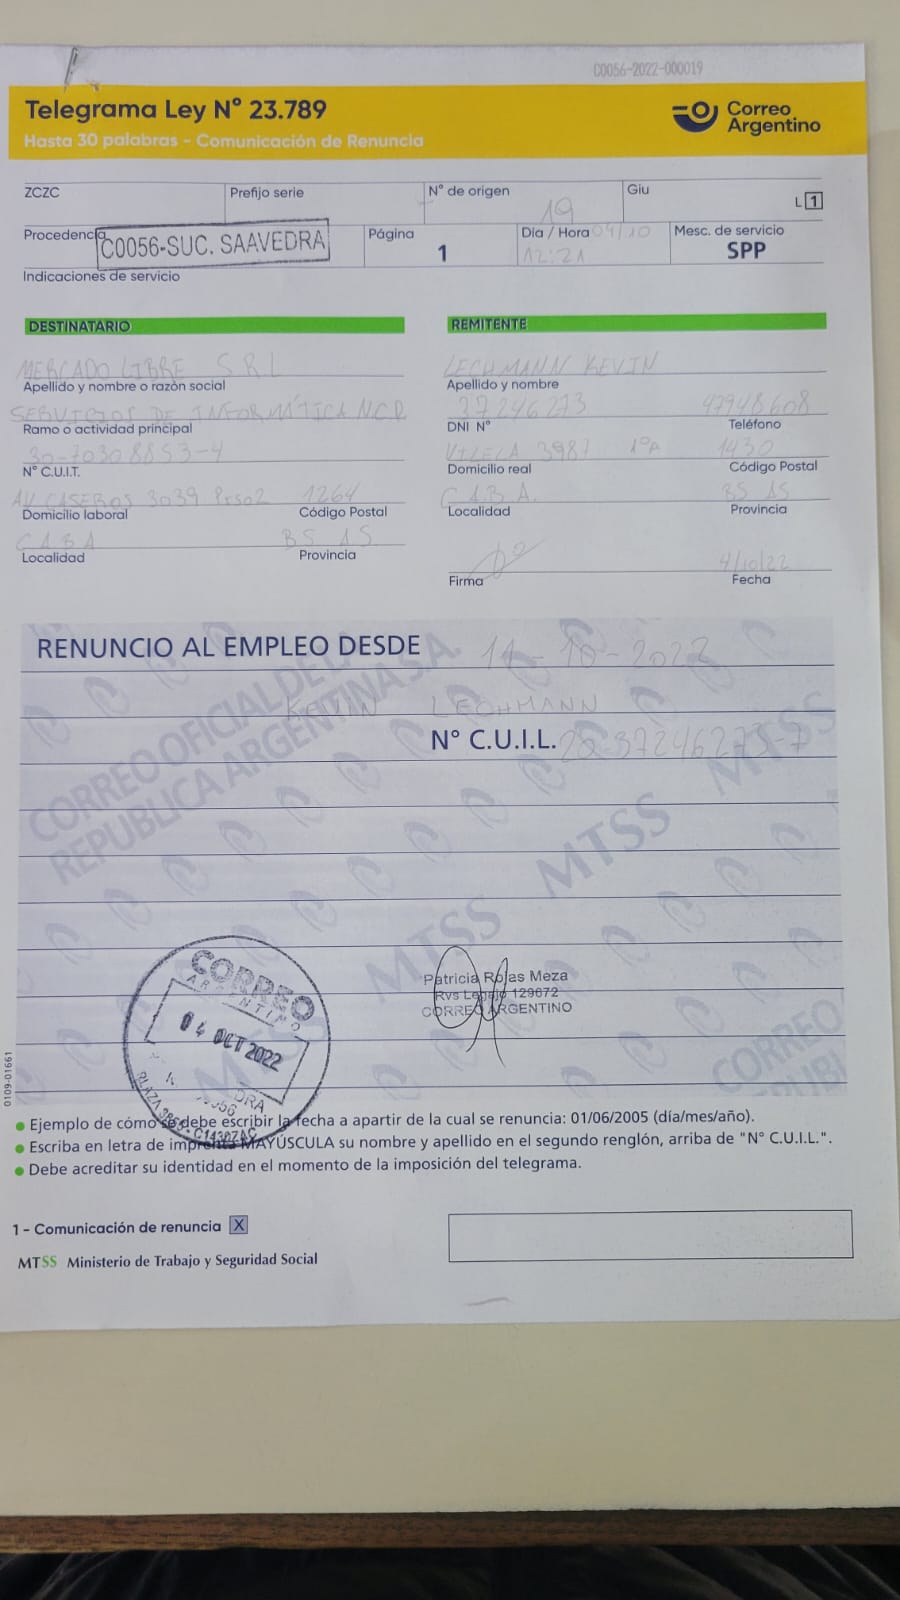 C0056-2022-000019
Telegrama Ley N° 23.789
Hasta 30 palabras - Comunicación de Renuncia
Correo
Argentino
ZCZC
Prefijo serie
N° de origen
19
Giu
L 1
Procedencia
C0056-SUC. SAAVEDRA
Página
1
Día / Hora 04/10
12:21
Mesc. de servicio
SPP
Indicaciones de servicio
DESTINATARIO
MERCADO LIBRE SRL
Apellido y nombre o razòn social
SERVICIOS DE INFORMÁTICA NCP
Ramo o actividad principal
30-70308853-4
N° C.U.I.T.
AV CASEROS 3039 PISO2 1264
Domicilio laboral Código Postal
CABA BS AS
Localidad Provincia
REMITENTE
LECHMANN KEVIN
Apellido y nombre
37246273 47948608
DNI N° Teléfono
VILELA 3987 1°A 1430
Domicilio real Código Postal
C.A.B.A. BS AS
Localidad Provincia
4/10/22
Firma Fecha
RENUNCIO AL EMPLEO DESDE 11-10-2022
KEVIN LECHMANN
N° C.U.I.L. 20-37246273-7
CORREO OFICIAL DE LA
REPUBLICA ARGENTINA S.A.
MTSS MTSS MTSS
CORREO
ARGENTINO
04 OCT 2022
Patricia Rojas Meza
Rvs Legajo 129672
CORREO ARGENTINO
0109-01661
Ejemplo de cómo se debe escribir la fecha a apartir de la cual se renuncia: 01/06/2005 (día/mes/año).
Escriba en letra de imprenta MAYÚSCULA su nombre y apellido en el segundo renglón, arriba de "N° C.U.I.L.".
Debe acreditar su identidad en el momento de la imposición del telegrama.
1 - Comunicación de renuncia X
MTSS Ministerio de Trabajo y Seguridad Social